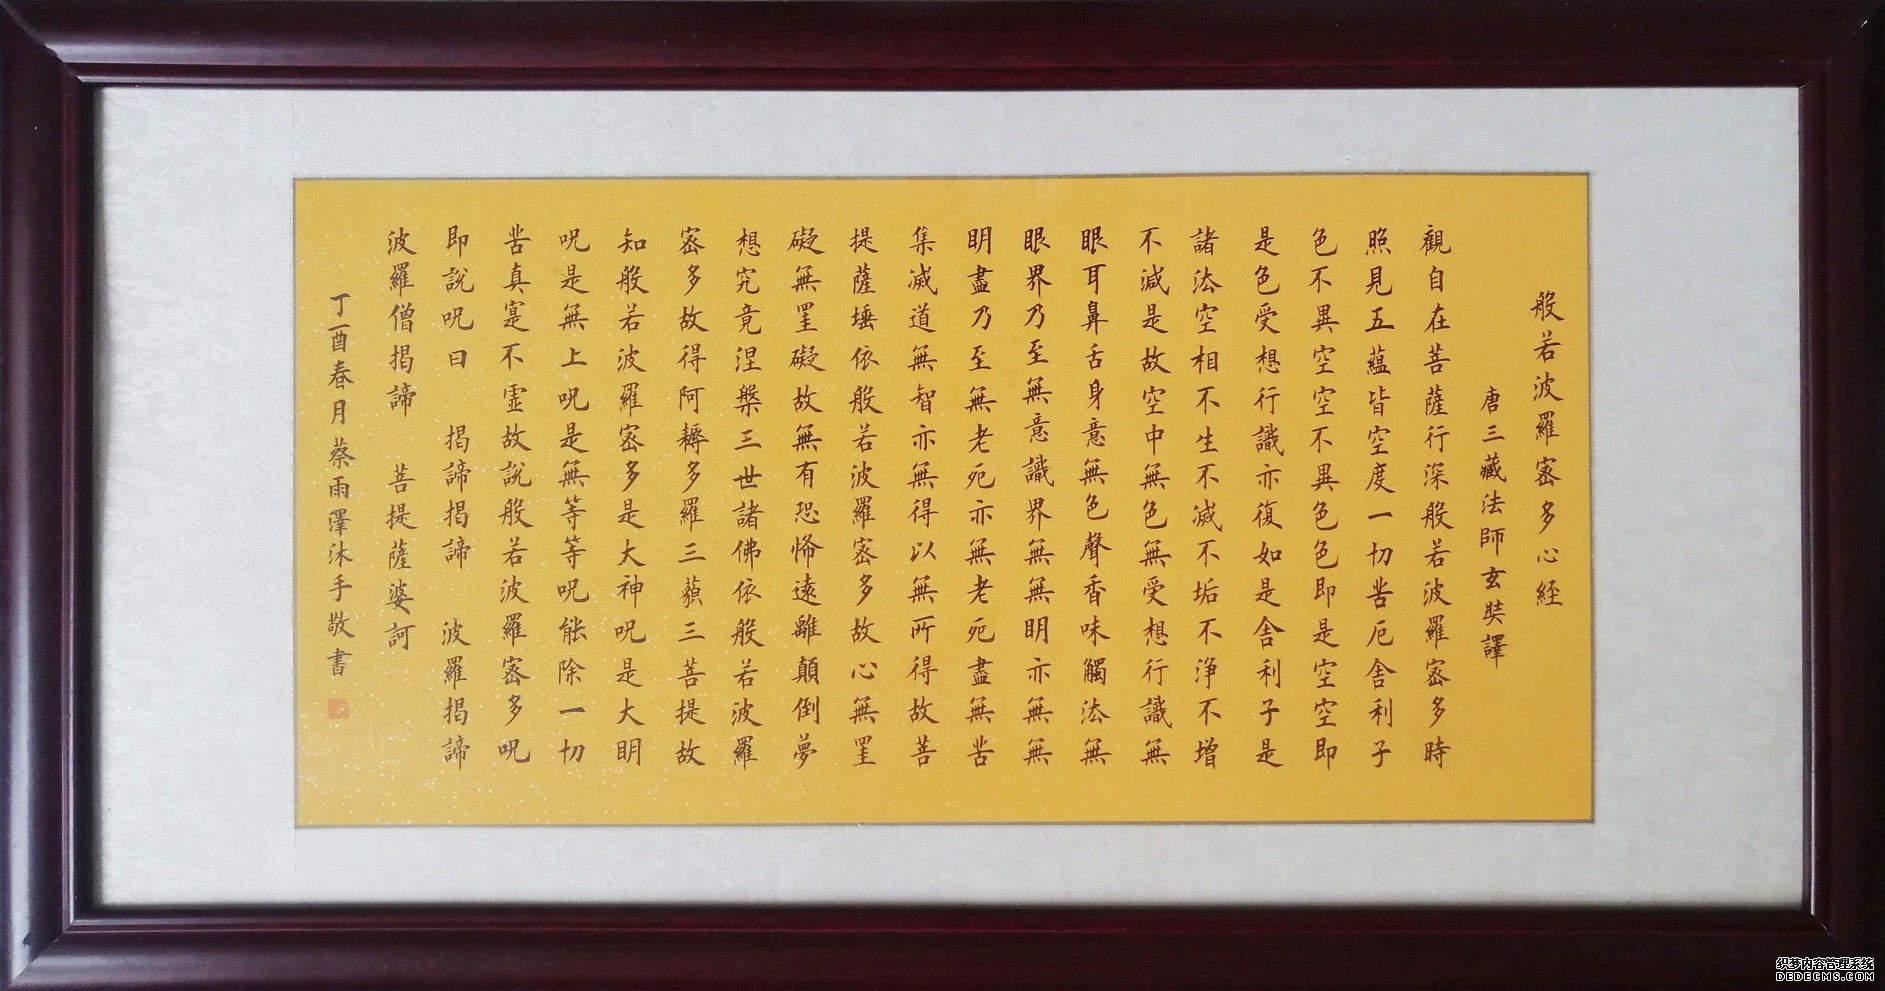 般若波羅密多心經
唐三藏法師玄奘譯
觀自在菩薩行深般若波羅密多時
照見五蘊皆空度一切苦厄舍利子
色不異空空不異色色即是空空即
是色受想行識亦復如是舍利子是
諸法空相不生不滅不垢不淨不增
不減是故空中無色無受想行識無
眼耳鼻舌身意無色聲香味觸法無
眼界乃至無意識界無無明亦無無
明盡乃至無老死亦無老死盡無苦
集滅道無智亦無得以無所得故菩
提薩埵依般若波羅密多故心無罣
礙無罣礙故無有恐怖遠離顛倒夢
想究竟涅槃三世諸佛依般若波羅
密多故得阿耨多羅三藐三菩提故
知般若波羅密多是大神呪是大明
呪是無上呪是無等等呪能除一切
苦真實不虛故說般若波羅密多呪
即說呪曰 揭諦揭諦 波羅揭諦
波羅僧揭諦 菩提薩婆訶
丁酉春月蔡雨澤沐手敬書
织梦内容管理系统
DEDECMS.COM